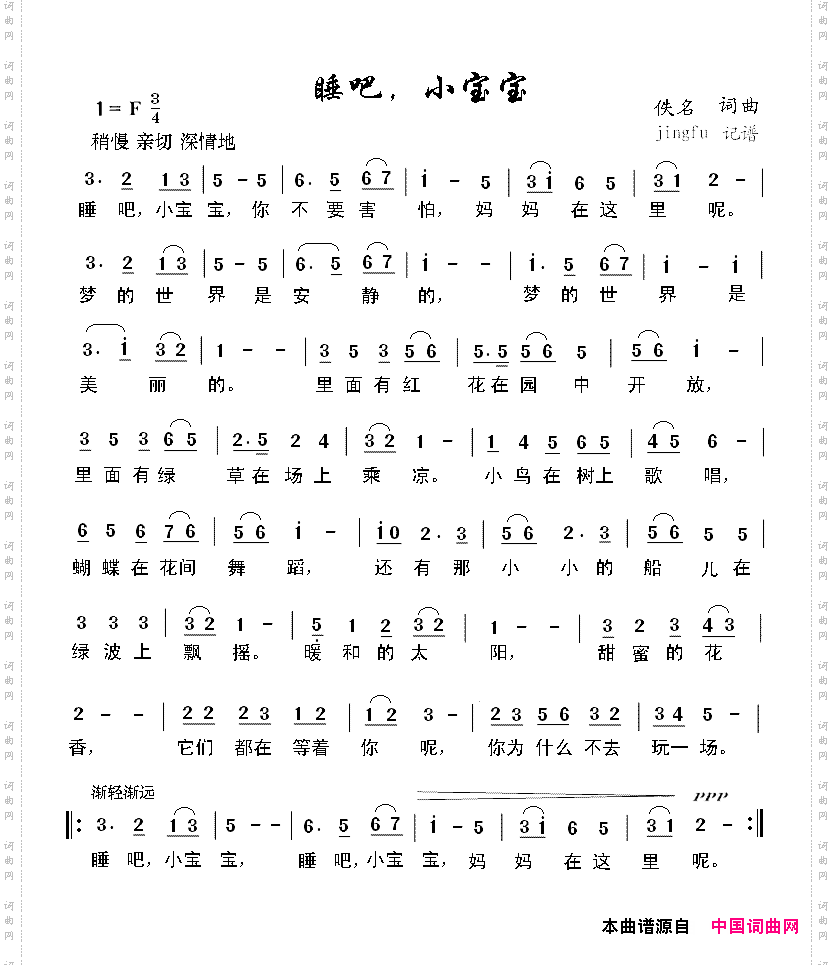 睡吧，小宝宝
1= F 3/4
佚名 词曲
稍慢 亲切 深情地
jingfu 记谱
3. 2 1 3 | 5 - 5 | 6. 5 6 7 | i - 5 | 3 i 6 5 | 3 1 2 - |
睡 吧，小宝 宝，你 不 要 害 怕，妈 妈 在 这 里 呢。
3. 2 1 3 | 5 - 5 | 6. 5 6 7 | i - - | i. 5 6 7 | i - i |
梦 的 世 界 是 安 静 的， 梦 的 世 界 是
3. i 3 2 | 1 - - | 3 5 3 5 6 | 5. 5 5 6 5 | 5 6 i - |
美 丽 的。 里 面 有 红 花 在 园 中 开 放，
3 5 3 6 5 | 2. 5 2 4 | 3 2 1 - | 1 4 5 6 5 | 4 5 6 - |
里 面 有 绿 草 在 场 上 乘 凉。 小 鸟 在 树上 歌 唱，
6 5 6 7 6 | 5 6 i - | i0 2. 3 | 5 6 2. 3 | 6 5 5 |
蝴 蝶 在 花间 舞 蹈， 还 有 那 小 小 的 船 儿 在
3 3 3 | 3 2 1 - | 5 1 2 3 2 | 1 - - | 3 2 3 4 3 |
绿 波 上 飘 摇。 暖 和 的 太 阳， 甜 蜜 的 花
2 - - | 2 2 2 3 1 2 | 1 2 3 - | 2 3 5 6 3 2 | 3 4 5 - |
香， 它们 都在 等着 你 呢， 你为 什么 不去 玩一 场。
渐轻渐远 ppp
‖: 3. 2 1 3 | 5 - - | 6. 5 6 7 | i - 5 | 3 i 6 5 | 3 1 2 - :‖
睡 吧，小宝 宝， 睡 吧，小宝 宝，妈 妈 在 这 里 呢。
本曲谱源自 中国词曲网